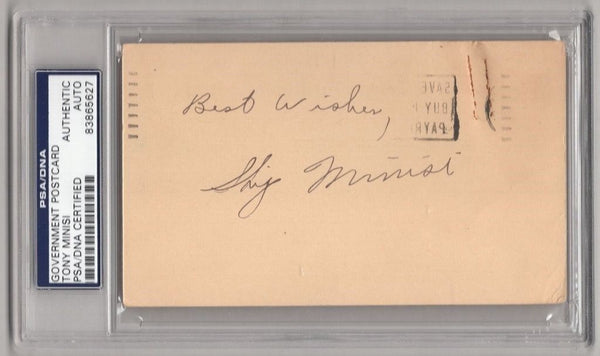 PSA/DNA
GOVERNMENT POSTCARD AUTHENTIC
TONY MINISI AUTO
PSA/DNA CERTIFIED 83865627
Best Wishes,
Skip Minisi
SAVE
BUY